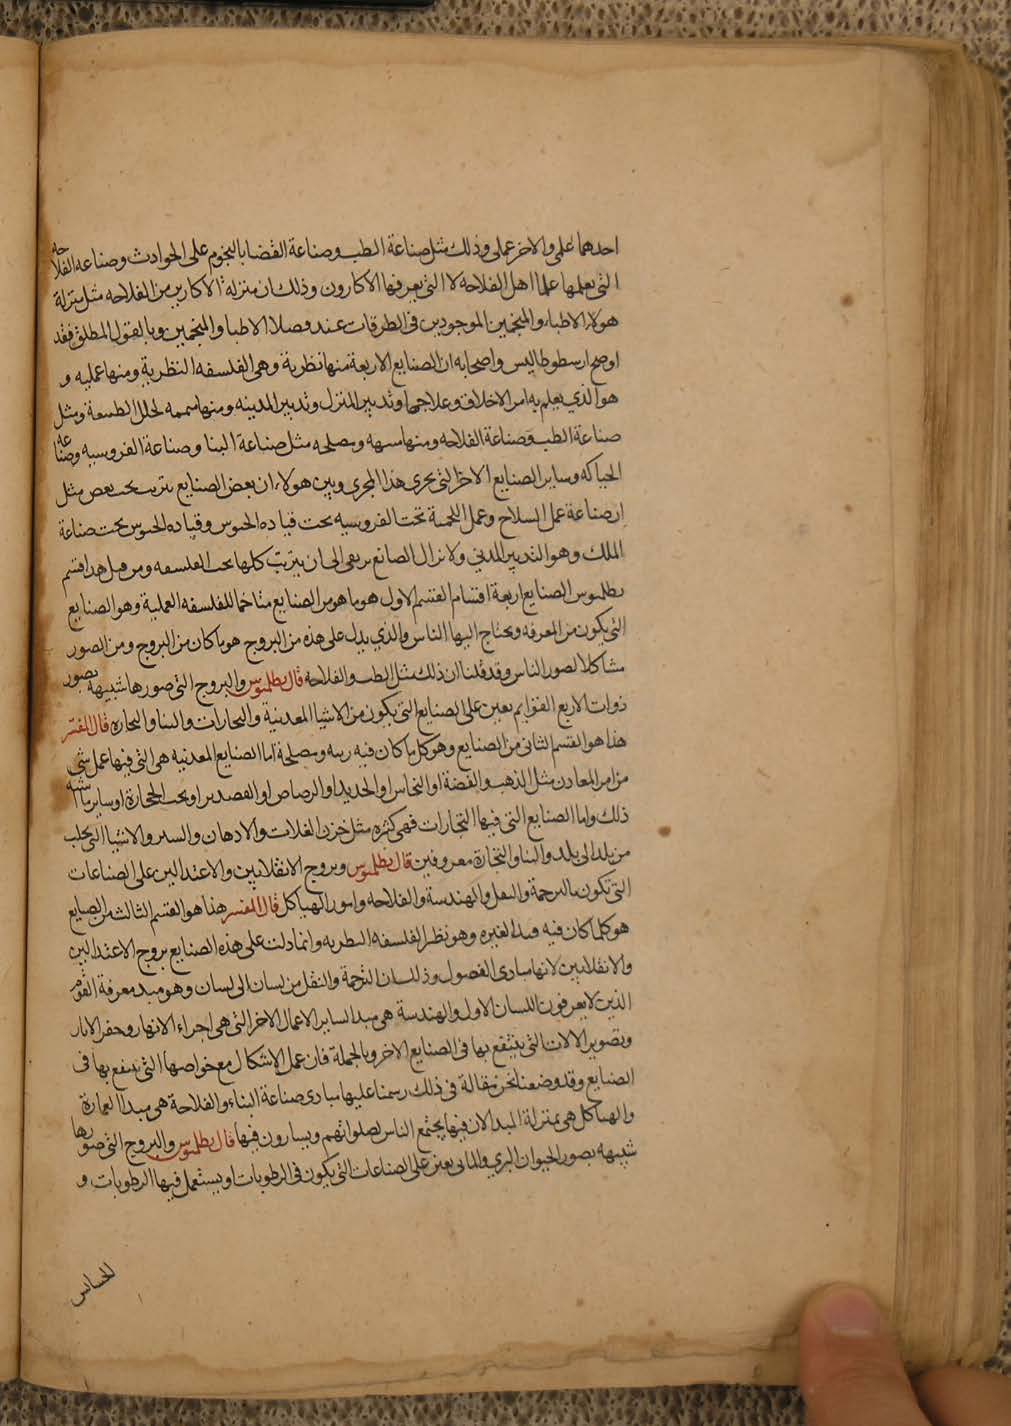 احدهما علمي والاخر عملي وذلك مثل صناعة الطب وصناعة القضايا بالنجوم على الحوادث وصناعه الفلاحه
التي يعلمها علما اهل الفلاحه لا التي يعرفها الاكارون وذلك ان منزلة الاكارين من الفلاحه مثل منزلة
هولاء الاطباء والمنجمين الموجودين في الطرقات عند فضلا الاطبا والمنجمين وبالقول المطلق فقد
اوضح ارسطوطاليس واصحابه ان الصنايع الاربعة منها نظرية وهي الفلسفه النظرية ومنها عمليه و
هو الذي يعلم به امر الاخلاق وعلاجها وتدبير المنزل وتدبير المدينه ومنها متممه لخلل الطبيعة ومثل
صناعة الطب وصناعة الفلاحه ومنها ومصلحه مثل صناعة البنا وصناعة الفروسيه وصناعه
الحياكه وساير الصنايع الاخر التي يجرى هذا المجرى وبين هولاء ان بعض الصنايع يترتب تحت بعض مثل
ان صناعة عمل السلاح وعمل اللجمة تحت الفروسيه تحت قياده الجيوس وقياده الجيوس تحت صناعة
الملك وهو التدبير المدني ولا نزال الصانع يرتقي الى ان يترتب كلها تحت الفلسفه ومن قبل هذا قسم
بطلميوس الصنايع اربعة اقسام القسم الاول هو ما هو من الصنايع متاخما للفلسفه العملية وهو الصنايع
التي يكون من المعرفه ويحتاج اليها الناس والذي يدل على هذه من البروج هو ما كان من البروج ومن الصور
مشاكلا لصور الناس وقد قلنا ان ذلك مثل الطب والفلاحه قال بطلميوس والبروج التي صورها شبيهة بصور
ذوات الاربع القوايم يعين على الصنايع التي يكون من الاشيا المعدنية والتجارات والبنا والنجاره قال المفسر
هذا هو القسم الثاني من الصنايع وهو كل ما كان فيه ومصلحة اما الصنايع المعدنيه هي التي فيها عمل شي
من امر المعادن مثل الذهب والفضة او النحاس او الحديد او الرصاص او القصدير او نحت الحجارة او ساير ما اشبه
ذلك واما الصنايع التي فيها التجارات فهي كثره مثل خزن الغلات والادهان والاشيا التي يجلب
من بلد الى بلد والبنا والنجارة معروفين قال بطلميوس وبروج الانقلابين والاعتدالين على الصناعات
التي تكون بالترجمة والنقل والهندسة والفلاحه وامور الهياكل قال المفسر هذا هو القسم الثالث من الصنايع
هو كلما كان فيه مبدا لغيره وهو نظر الفلسفه النظريه وانما دلت على هذه الصنايع بروج الاعتدالين
والانقلابين لانها مبادى الفصول وذلك ان الترجمة والنقل من لسان الى لسان وهو مبدء معرفة القوم
الذين لا يعرفون اللسان الاول والهندسة هي مبدا لساير الاعمال الاخر التي هي اجراء الانهار وحفر الابار
وتصوير الالات التي ينتفع بها في الصنايع الاخر وبالجملة فان عمل الاشكال مع خواصها التي ينتفع بها في
الصنايع وقد وضعنا نحن مقالة في ذلك رسمنا عليها مبادى صناعة البناء والفلاحة هي مبدا العمارة
والهياكل هي بمنزلة المبدا لان فيها يجتمع الناس لصلواتهم ويسارون فيها قال بطلميوس والبروج التي صورها
شبيهه بصور الحيوان البري والماي يعين على الصناعات التي يكون في الرطوبات او يستعمل فيها الرطوبات و